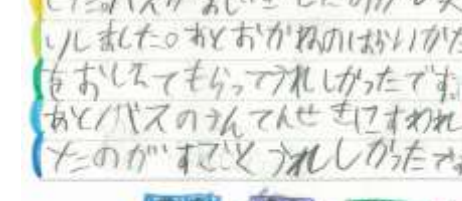 りしました。あとおかねのはらいかた
をおしえてもらってうれしかったです。
あとバスのうんてんせきにすわれ
たのがすごくうれしかったです